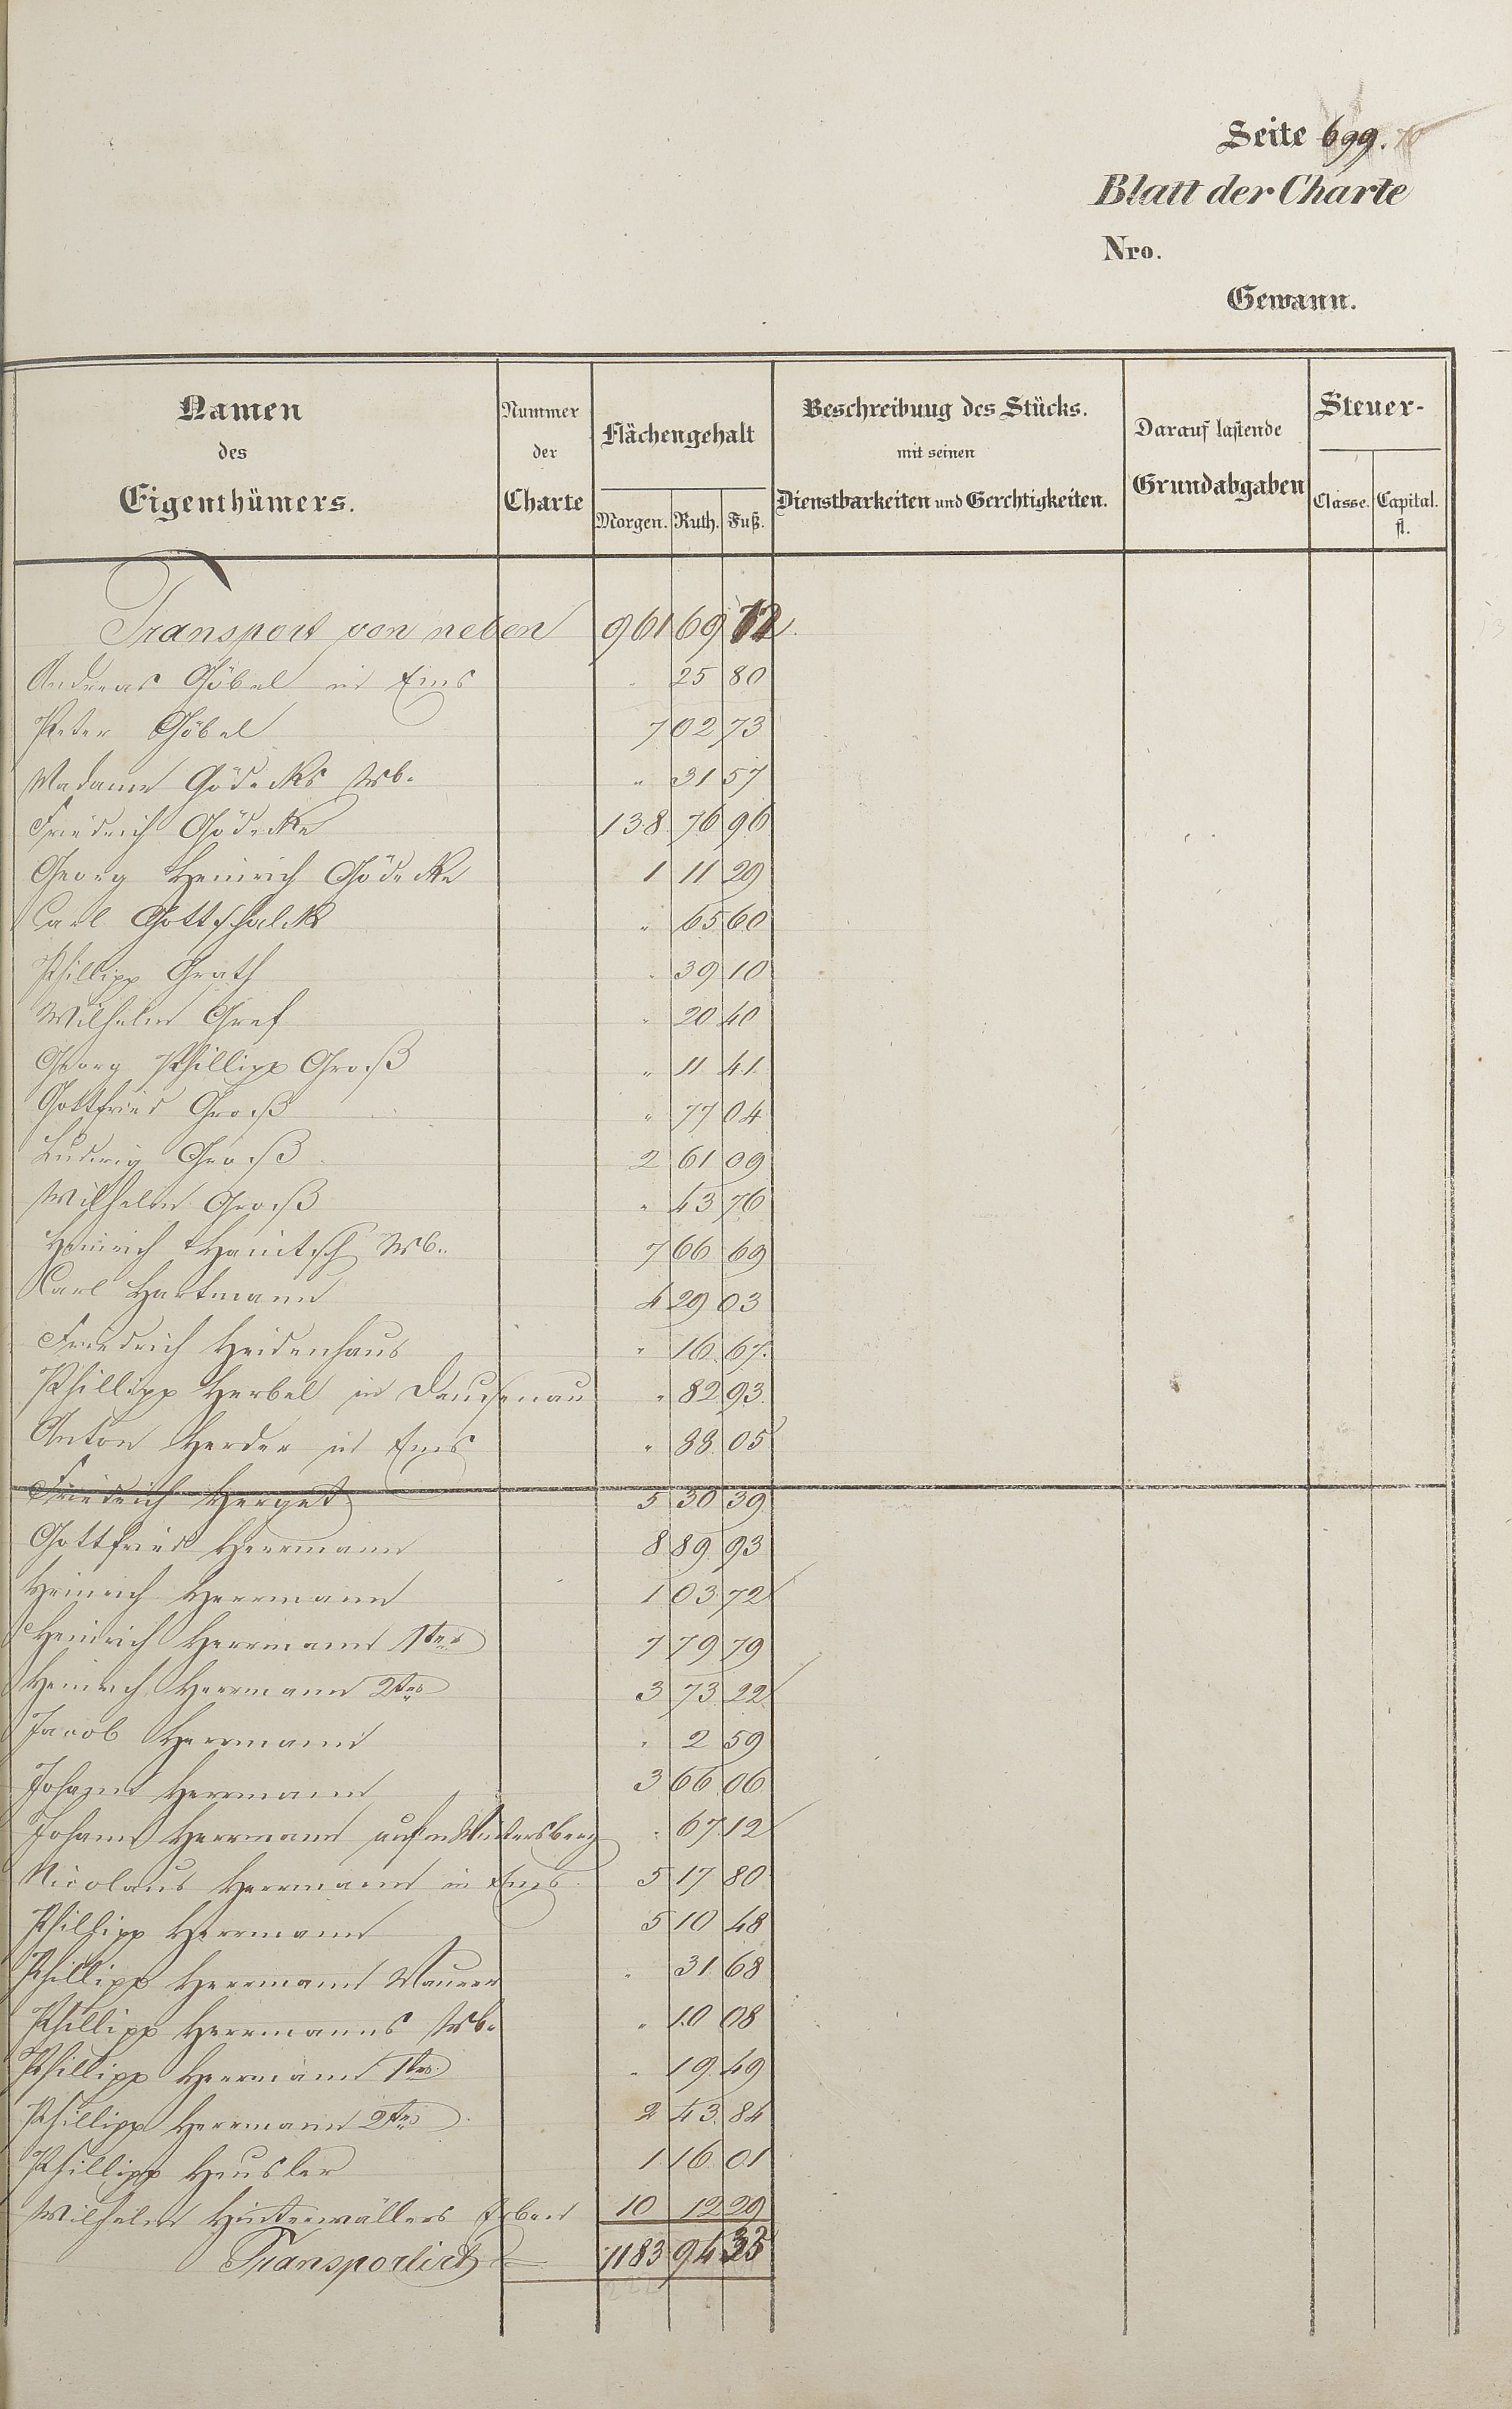 Seite 699.
Blatt der Charte
Nro.
Gewann.
Namen des Eigenthümers. Nummer der Charte Flächengehalt Morgen. Ruth. Fuß. Beschreibung des Stücks. mit seinen Dienstbarkeiten und Gerchtigkeiten. Darauf lastende Grundabgaben Steuer- Classe. Capital. fl.
Transport von neben 961 69 12
Andreas Göbel in Ems " 25 80
Peter Göbel 7 02 73
Madame Gödecks Wb. " 31 57
Friedrich Gödecke 138 76 96
Georg Heinrich Gödecke 1 11 29
Carl Gottschalck " 65 60
Phillipp Grath " 39 10
Wilhelm Gref " 20 40
Georg Phillipp Groß " 11 41
Gottfried Groß " 77 04
Ludwig Groß 2 61 09
Wilhelm Groß " 43 76
Heinrich Hanitsch Wb. 7 66 69
Carl Hartmann 4 29 03
Friedrich Heidenhaus " 16 67.
Phillipp Herbel in Dausenau " 82 93
Anton Herder in Ems " 88 05
Friedrich Herget 5 30 39
Gottfried Herrmann 8 89 93
Heinrich Herrmann 1 03 72
Heinrich Herrmann 1ter 7 79 79
Heinrich Herrmann 2ter 3 73 22
Jacob Herrmann " 2 59
Johann Herrmann 3 66 06
Johann Herrmann auf'm Wintersberg " 67 12
Nicolaus Herrmann in Ems 5 17 80
Phillipp Herrmann 5 10 48
Phillipp Herrmann Maurer " 31 68
Phillipp Herrmanns Wb. " 10 08
Phillipp Herrmann 1ter " 19 49
Phillipp Herrmann 2ter 2 43 84
Phillipp Heusler 1 16 01
Wilhelm Hinterwällers Erben 10 12 29
Transportirt 1183 94 33